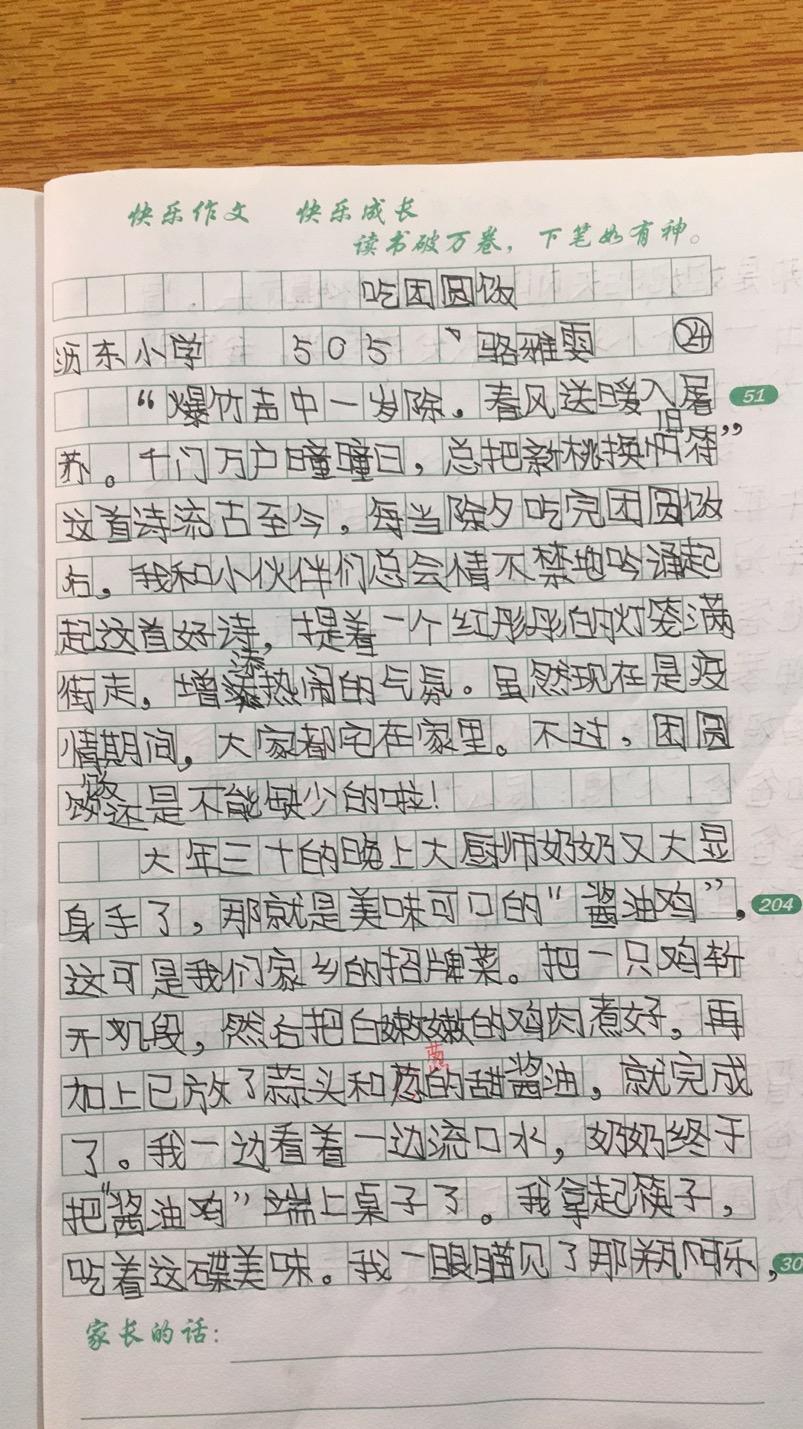 快乐作文 快乐成长
读书破万卷，下笔如有神。
吃团圆饭
沥东小学 505 骆雅雯 24
“爆竹声中一岁除，春风送暖入屠 51
苏。千门万户曈曈日，总把新桃换旧符”
这首诗流古至今，每当除夕吃完团圆饭
后，我和小伙伴们总会情不禁地吟诵起
起这首好诗，提着一个红彤彤的灯笼满
街走，增添热闹的气氛。虽然现在是疫
情期间，大家都宅在家里。不过，团圆
饭还是不能缺少的啦！
大年三十的晚上大厨师奶奶又大显
身手了，那就是美味可口的“酱油鸡”， 204
这可是我们家乡的招牌菜。把一只鸡斩
开几段，然后把白嫩嫩的鸡肉煮好，再
加上已放了蒜头和葱的甜酱油，就完成
了。我一边看着一边流口水，奶奶终于
把“酱油鸡”端上桌子了。我拿起筷子，
吃着这碟美味。我一眼瞄见了那瓶可乐， 30
家长的话：